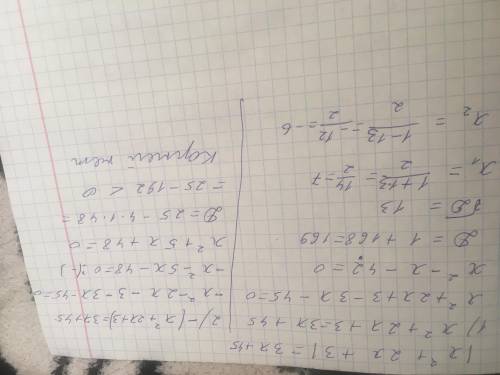 |x² + 2x + 3| = 3x + 45
1) x² + 2x + 3 = 3x + 45
x² + 2x + 3 - 3x - 45 = 0
x² - x - 42 = 0
D = 1 + 168 = 169
√D = 13
x₁ = (1 + 13)/2 = 14/2 = 7
x₂ = (1 - 13)/2 = -12/2 = -6
2) -(x² + 2x + 3) = 3x + 45
-x² - 2x - 3 - 3x - 45 = 0
-x² - 5x - 48 = 0 |:(-1)
x² + 5x + 48 = 0
D = 25 - 4·1·48 =
= 25 - 192 < 0
Корней нет